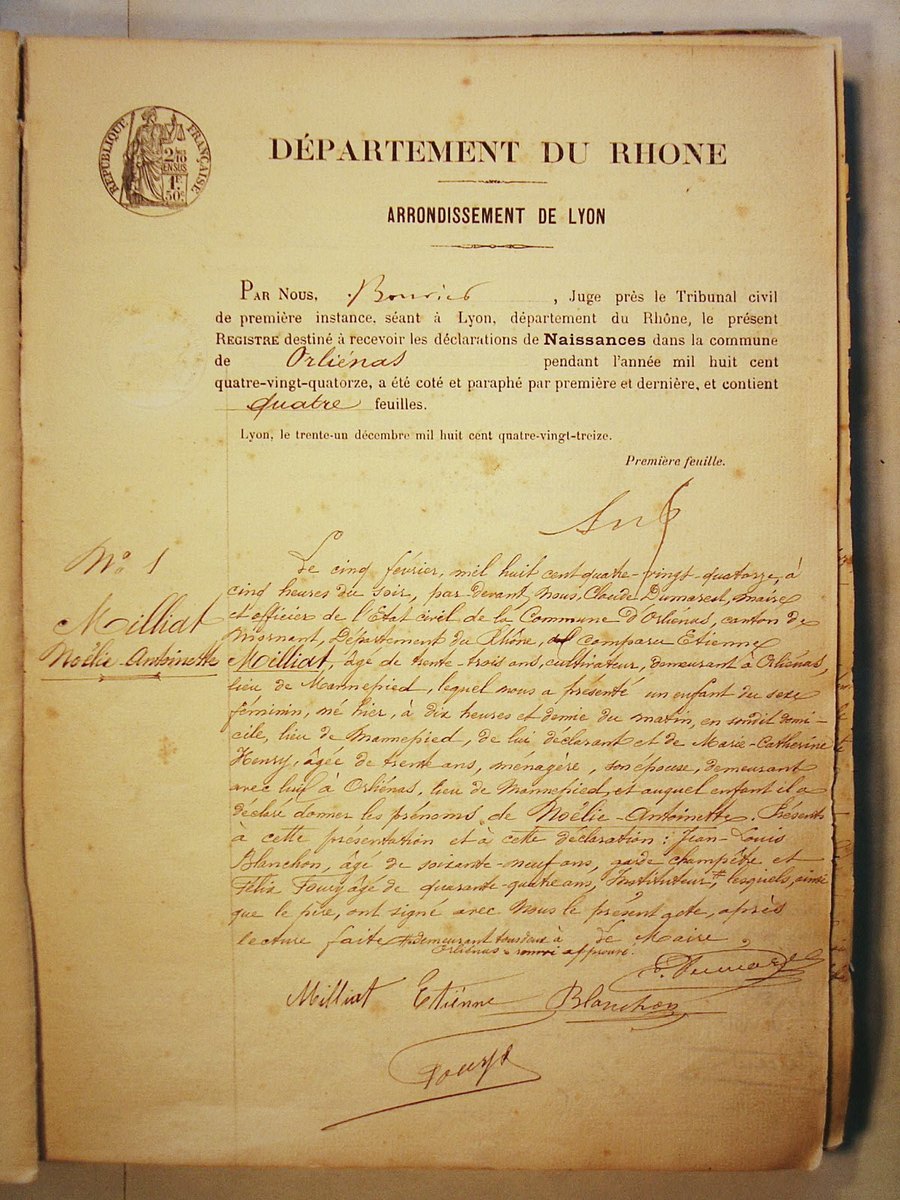 RÉPUBLIQUE FRANÇAISE
2/10 EN SUS
1F 50c
DÉPARTEMENT DU RHONE
ARRONDISSEMENT DE LYON
PAR NOUS, , Juge près le Tribunal civil
de première instance, séant à Lyon, département du Rhône, le présent
REGISTRE destiné à recevoir les déclarations de Naissances dans la commune
de Orliénas pendant l'année mil huit cent
quatre-vingt-quatorze, a été coté et paraphé par première et dernière, et contient
quatre feuilles.
Lyon, le trente-un décembre mil huit cent quatre-vingt-treize.
Première feuille.
No 1
Milliat
Noëlie-Antoinette
Le cinq février, mil huit cent quatre-vingt-quatorze, à
cinq heures du soir, par devant nous, Claude Dumarest, maire
et officier de l'Etat civil de la Commune d'Orliénas, canton de
Mornant, Département du Rhône, a comparu Etienne
Milliat, âgé de trente-trois ans, cultivateur, demeurant à Orliénas,
lieu de Mannepied, lequel nous a présenté un enfant du sexe
féminin, né hier, à dix heures et demie du matin, en son dit domi-
cile, lieu de Mannepied, de lui déclarant et de Marie-Catherine
Henry, âgée de trente ans, ménagère, son épouse, demeurant
avec lui à Orliénas, lieu de Mannepied, et auquel enfant il a
déclaré donner les prénoms de Noëlie-Antoinette. Présents
à cette présentation et à cette déclaration : Jean-Louis
Blanchon, âgé de soixante-neuf ans, garde champêtre et
Félix Fourg âgé de quarante-quatre ans, Instituteur #, lesquels, ainsi
que le père, ont signé avec Nous le présent acte, après
lecture faite # demeurant tous deux à Le Maire,
Orliénas - renvoi approuvé.
C. Dumarest
Milliat Etiénne Blanchon